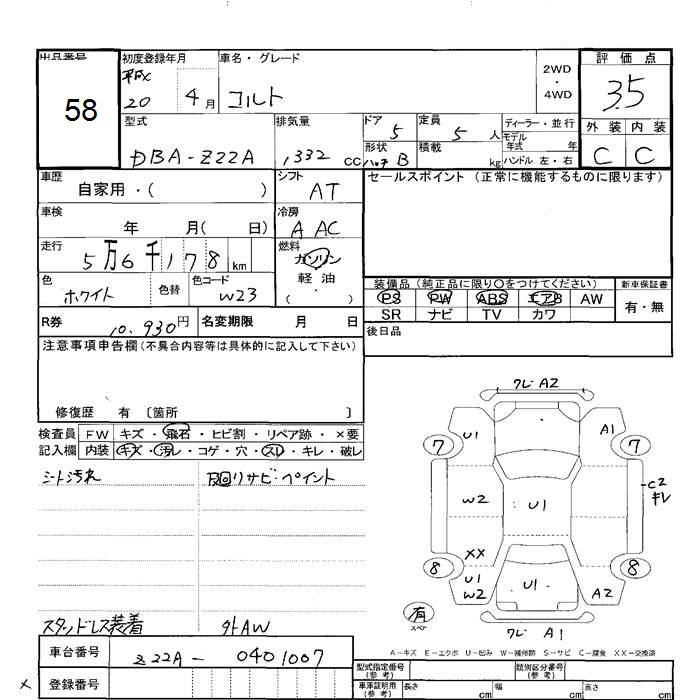 出品番号 58
初度登録年月 平成 20 4月
車名・グレード コルト
2WD・4WD
評価点 3.5
外装 内装
C C
型式 DBA-Z22A
排気量 1,332 CC
ドア 5
定員 5 人
形状 ハッチB
積載 kg
ディーラー・並行
モデル年式 年
ハンドル 左・右
車歴 自家用・( )
シフト AT
セールスポイント (正常に機能するものに限ります)
車検 年 月( 日)
冷房 A AC
走行 5万6千178km
燃料 ガソリン
軽・油
( )
色 ホワイト 色替 色コード W23
装備品(純正品に限り○をつけてください) 新車保証書
PS PW ABS エアB AW 有・無
SR ナビ TV カワ
R券 10,930円 名変期限 月 日
後日品
注意事項申告欄(不具合内容等は具体的に記入して下さい)
修復歴 有 〔箇所 〕
検査員 FW キズ・飛石・ヒビ割・リペア跡・×要
記入欄 内装 キズ・汚レ・コゲ・穴・スレ・キレ・破レ
シート汚れ
下回リサビ・ペイント
スタッドレス装着 外AW
ワレ A2
U1 A1
7 7
C2
キレ
W2 U1
XX
8 8
U1
W2 U1 A2
有
スペア
ワレ A1
A-キズ E-エクボ U-凹み W-補修跡 S-サビ C-腐食 XX-交換済
車台番号 Z22A- 0401007
登録番号
型式指定番号(参考) 類別区分番号(参考)
車庫証明用(参考) 長さ cm 幅 cm 高さ cm